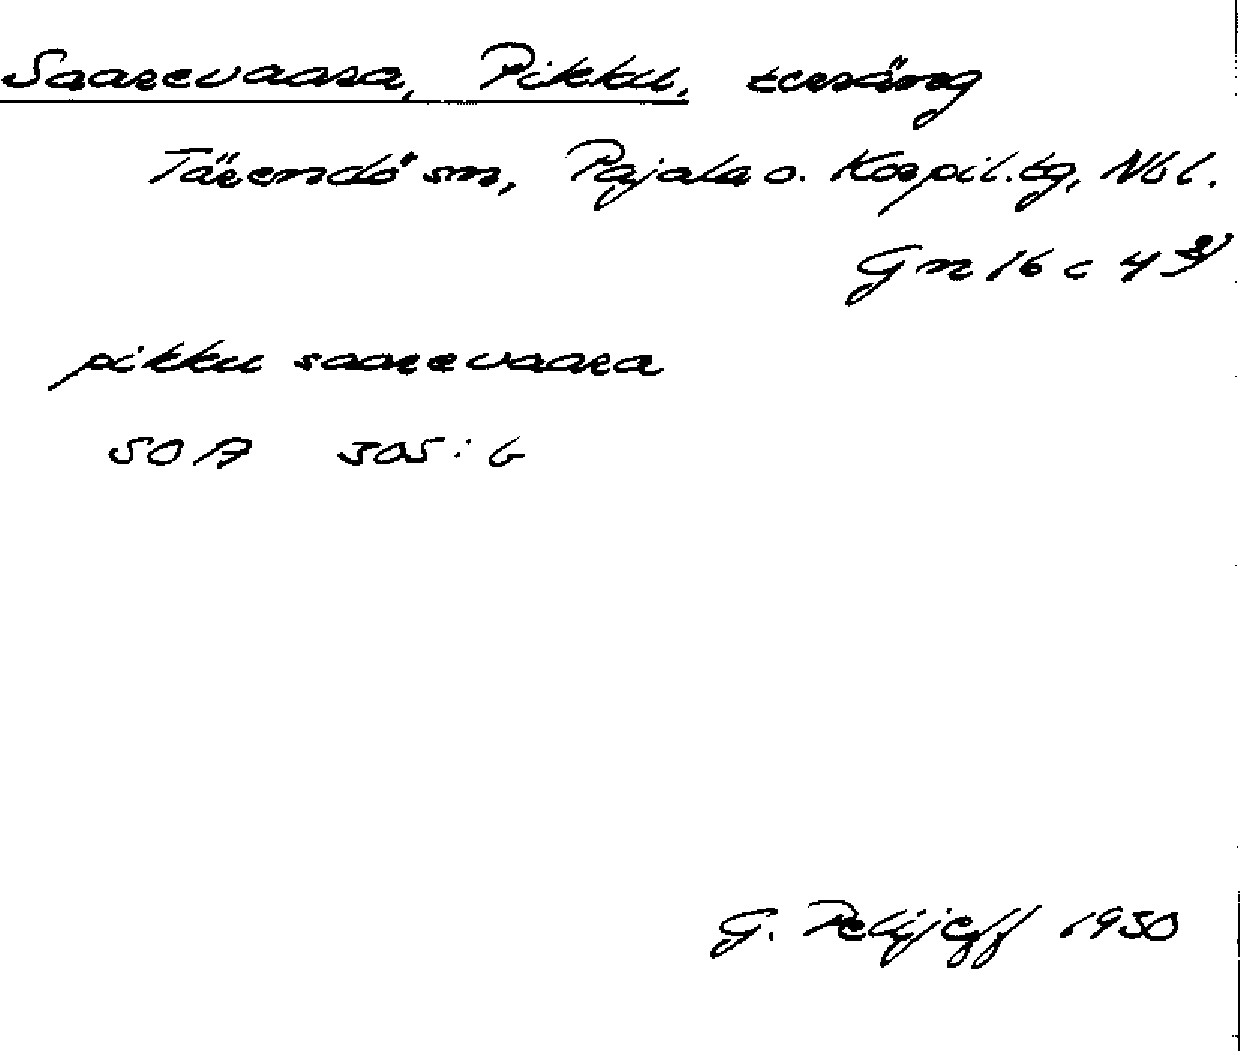 Saarevaara, Pikku, terräng
Tärendö sn, Pajala o. Korpil. tg, Nbl.
Gn 16 c 4
pikku saarevaara
SOA 305: 6
G. Pellijeff 1950